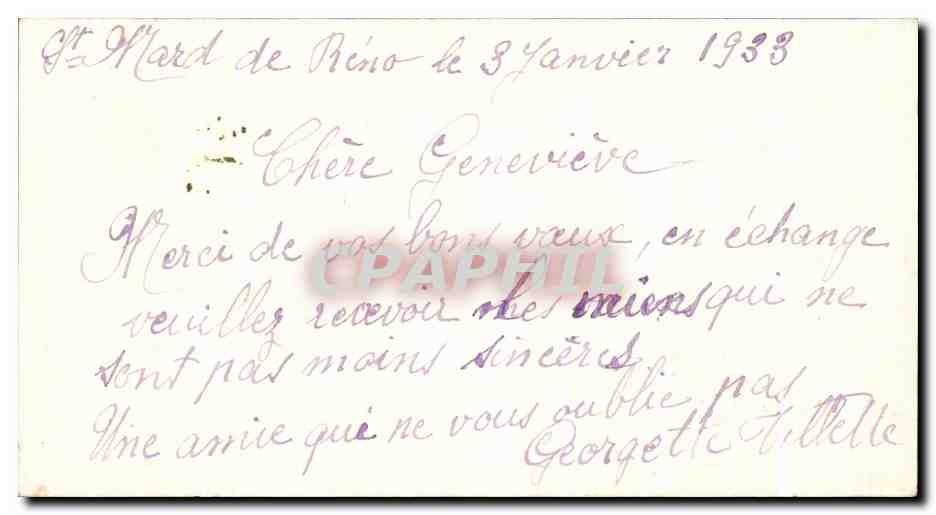 St Mard de Réno le 3 Janvier 1933
Chère Geneviève
Merci de vos bons vœux, en échange
CPAPHIL
veuillez recevoir les miens qui ne
sont pas moins sincères
Une amie qui ne vous oublie pas
Georgette